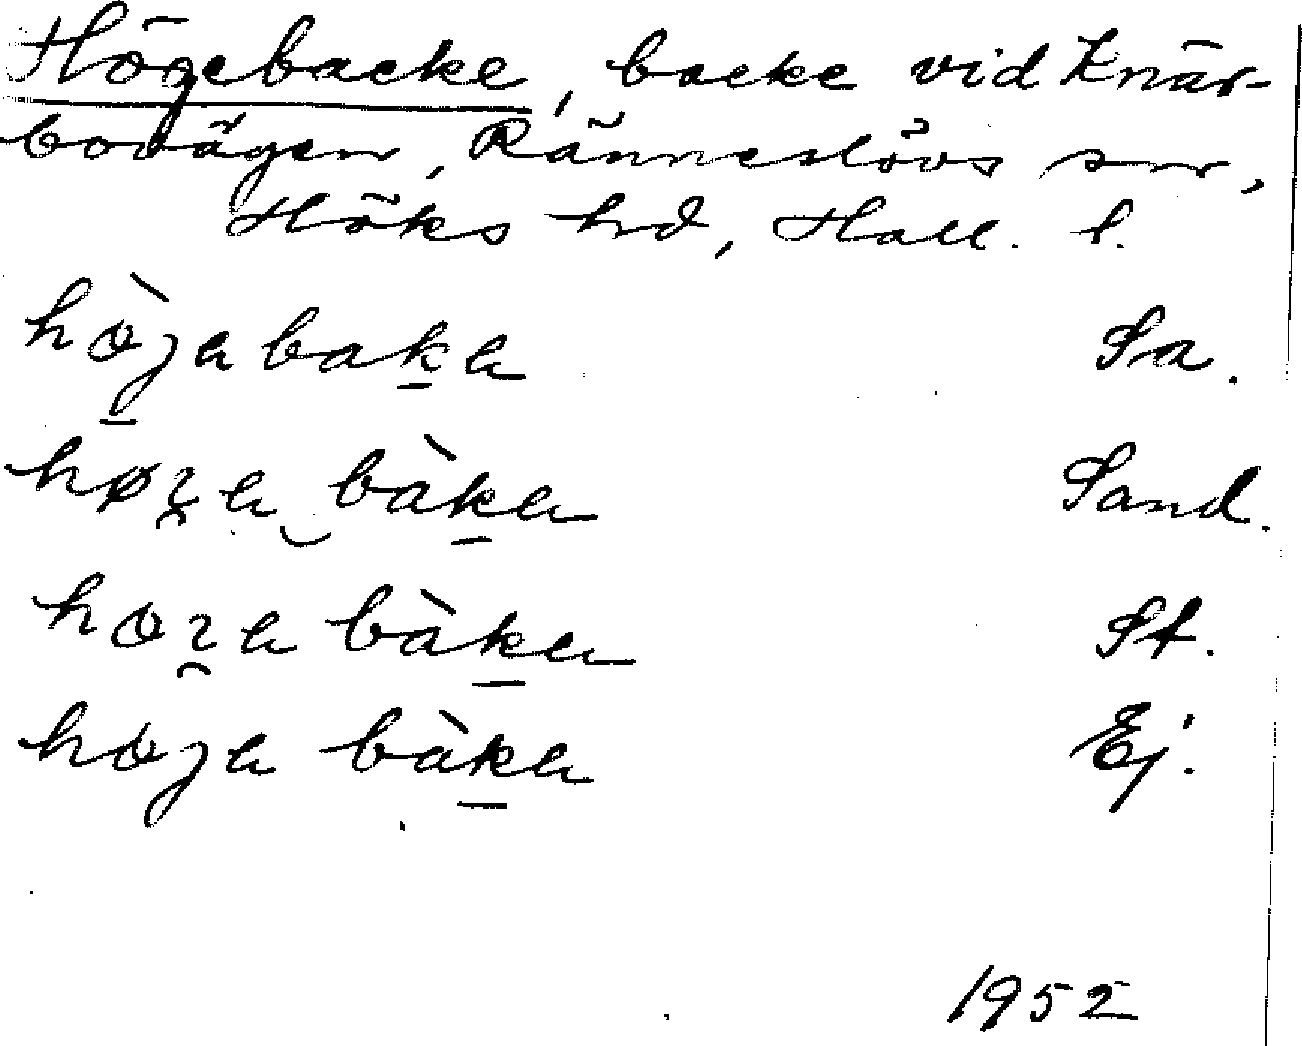 Högebacke, backe vid Knär-
bovägen, Ränneslövs sn,
Höks hd, Hall. l.
hòȷabaka Sa.
høɀa bàka Sand.
hoɀa bàka St.
hoȷa bàka Ej.
1952